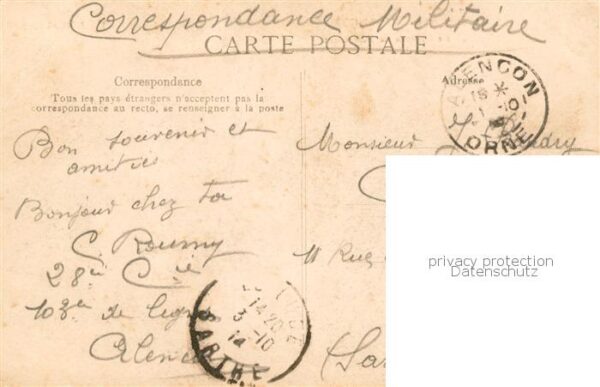 Correspondance Militaire
CARTE POSTALE
Correspondance
Tous les pays étrangers n'acceptent pas la
correspondance au recto, se renseigner à la poste
Adresse
ALENÇON
ORNE
Bon souvenir et
amitiés
Bonjour chez toi
C. Roumy
28è Cie
103è de ligne
Alençon
Monsieur
11 Rue
(Sar
14 20
3 -10
14
SARTHE
privacy protection
Datenschutz